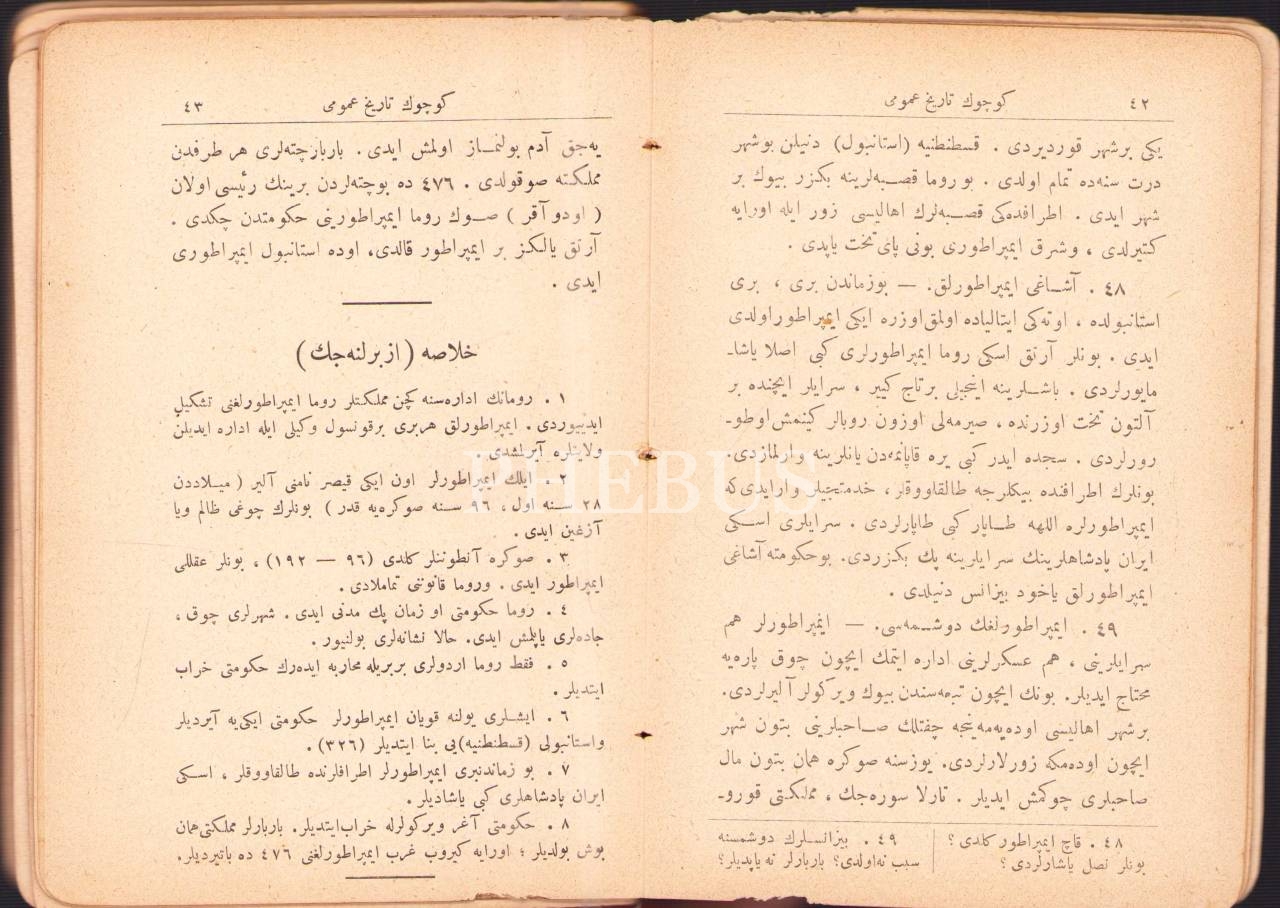 ٤٢
كوچوك تاريخ عمومى
يكى بر شهر قورديردى . قسطنطنيه (استانبول) دنيلن بوشهر
درت سنه‌ده تمام اولدى . بو روما قصبه‌لرينه بكزر بيوك بر
شهر ايدى . اطرافده‌كى قصبه‌لرك اهاليسى زور ايله اورايه
كتيرلدى ، وشرق ايمپراطورى بونى پاى تخت ياپدى .
٤٨ . آشاغى ايمپراطورلق. — بوزماندن برى ، برى
استانبولده ، اوته‌كى ايتالياده اولمق اوزره ايكى ايمپراطور اولدى
ايدى . بونلر آرتق اسكى روما ايمپراطورلرى كبى اصلا ياشا-
مايورلردى . باشلرينه اينجيلى بر تاج كيير ، سرايلر ايچنده بر
آلتون تخت اوزرنده ، صيرمه‌لى اوزون روبالر كينمش اوطو-
رورلردى . سجده ايدر كبى يره قاپانمه‌دن يانلرينه وارلمازدى.
بونلرك اطرافنده بيكلرجه طالقاووقلر ، خدمتجيلر وار ايدى كه
ايمپراطورلره اللهه طاپار كبى طاپارلردى . سرايلرى اسكى
ايران پادشاهلرينك سرايلرينه پك بكزردى. بوحكومته آشاغى
ايمپراطورلق ياخود بيزانس دنيلدى .
٤٩ . ايمپراطورلغك دوشمه‌سى. — ايمپراطورلر هم
سرايلرينى ، هم عسكرلرينى اداره ايتمك ايچون چوق پاره‌يه
محتاج ايديلر. بونك ايچون تبعه‌سندن بيوك ويركولر آليرلردى.
بر شهر اهاليسى اوده‌يه‌مه‌ينجه چفتلك صاحبلرينى بتون شهر
ايچون اوده‌مكه زورلارلردى. يوز سنه صوكره همان بتون مال
صاحبلرى چوكمش ايديلر . تارلا سوره‌جك ، مملكتى قورو-
٤٨ . قاچ ايمپراطور كلدى ؟
بونلر نصل ياشارلردى ؟
٤٩ . بيزانسلرك دوشمسنه
سبب نه‌اولدى؟ باربارلر نه ياپديلر؟
كوچوك تاريخ عمومى
٤٣
يه‌جق آدم بولنمـاز اولمش ايدى . باربار چته‌لرى هر طرفدن
مملكته صوقولدى . ٤٧٦ ده بوچته‌لردن برينك رئيسى اولان
( اودوآقر ) صوك روما ايمپراطورينى حكومتدن چكدى .
آرتق يالكز بر ايمپراطور قالدى، اوده استانبول ايمپراطورى
ايدى .
خلاصه ( ازبرلنه‌جك )
١ . رومانك اداره‌سنه كچن مملكتلر روما ايمپراطورلغنى تشكيل
ايدييوردى . ايمپراطورلق هربرى برقونسول وكيلى ايله اداره ايديلن
ولايتلره آيرلمشدى .
٢ . ايلك ايمپراطورلر اون ايكى قيصر نامنى آلير ( ميلاددن
٢٨ سنه اول ، ٩٦ سنه صوكره‌يه قدر ) بونلرك چوغى ظالم ويا
آزغين ايدى .
٣ . صوكره آنطوننلر كلدى (٩٦ — ١٩٢) ، بونلر عقللى
ايمپراطور ايدى . وروما قانوننى تماملادى .
٤ . روما حكومتى او زمان پك مدنى ايدى . شهرلرى چوق ،
جاده‌لرى ياپلمش ايدى. حالا نشانه‌لرى بولنيور .
٥ . فقط روما اردولرى بربريله محاربه ايده‌رك حكومتى خراب
ايتديلر .
٦ . ايشلرى يولنه قويان ايمپراطورلر حكومتى ايكى‌يه آيرديلر
واستانبولى (قسطنطنيه)يى بنا ايتديلر (٣٢٦) .
٧ . بو زماندنبرى ايمپراطورلر اطرافلرنده طالقاووقلر ، اسكى
ايران پادشاهلرى كبى ياشاديلر .
٨ . حكومتى آغر ويركولرله خراب ايتديلر. باربارلر مملكتى همان
بوش بولديلر ؛ اورايه كيروب غرب ايمپراطورلغنى ٤٧٦ ده باتيرديلر.
PHEBUS